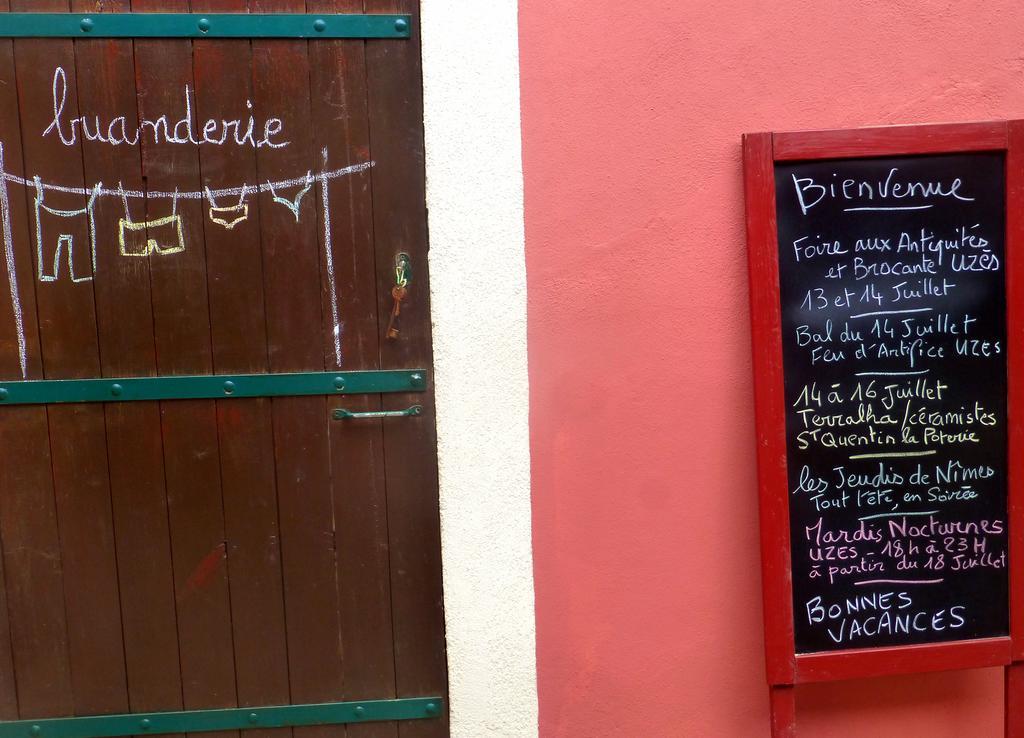 buanderie
Bienvenue
Foire aux Antiquités
et Brocante UZÈS
13 et 14 Juillet
Bal du 14 Juillet
Feu d'Artifice UZES
14 à 16 Juillet
Terralha/céramistes
ST Quentin la Poterie
les Jeudis de Nîmes
Tout l'été, en Soirée
Mardis Nocturnes
UZES - 18h à 23H
à partir du 18 Juillet
BONNES
VACANCES